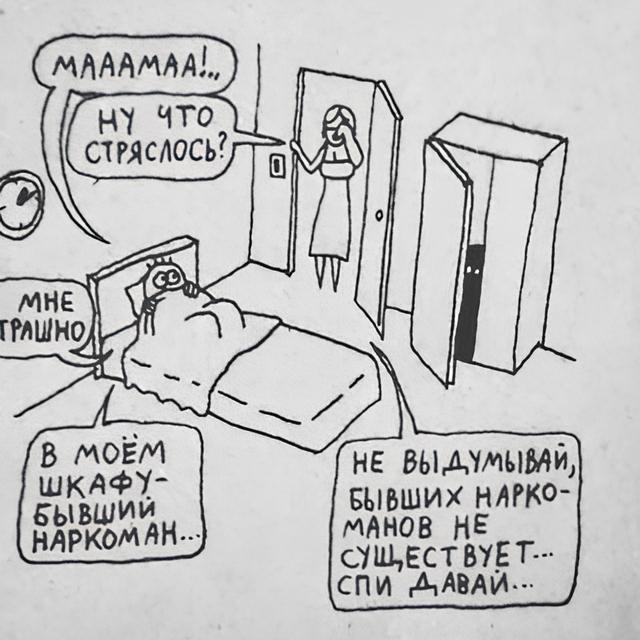 МАААМАА!..
НУ ЧТО
СТРЯСЛОСЬ?
МНЕ
ТРАШНО
В МОЁМ
ШКАФУ-
БЫВШИЙ
НАРКОМАН...
НЕ ВЫДУМЫВАЙ,
БЫВШИХ НАРКО-
МАНОВ НЕ
СУЩЕСТВУЕТ...
СПИ ДАВАЙ...